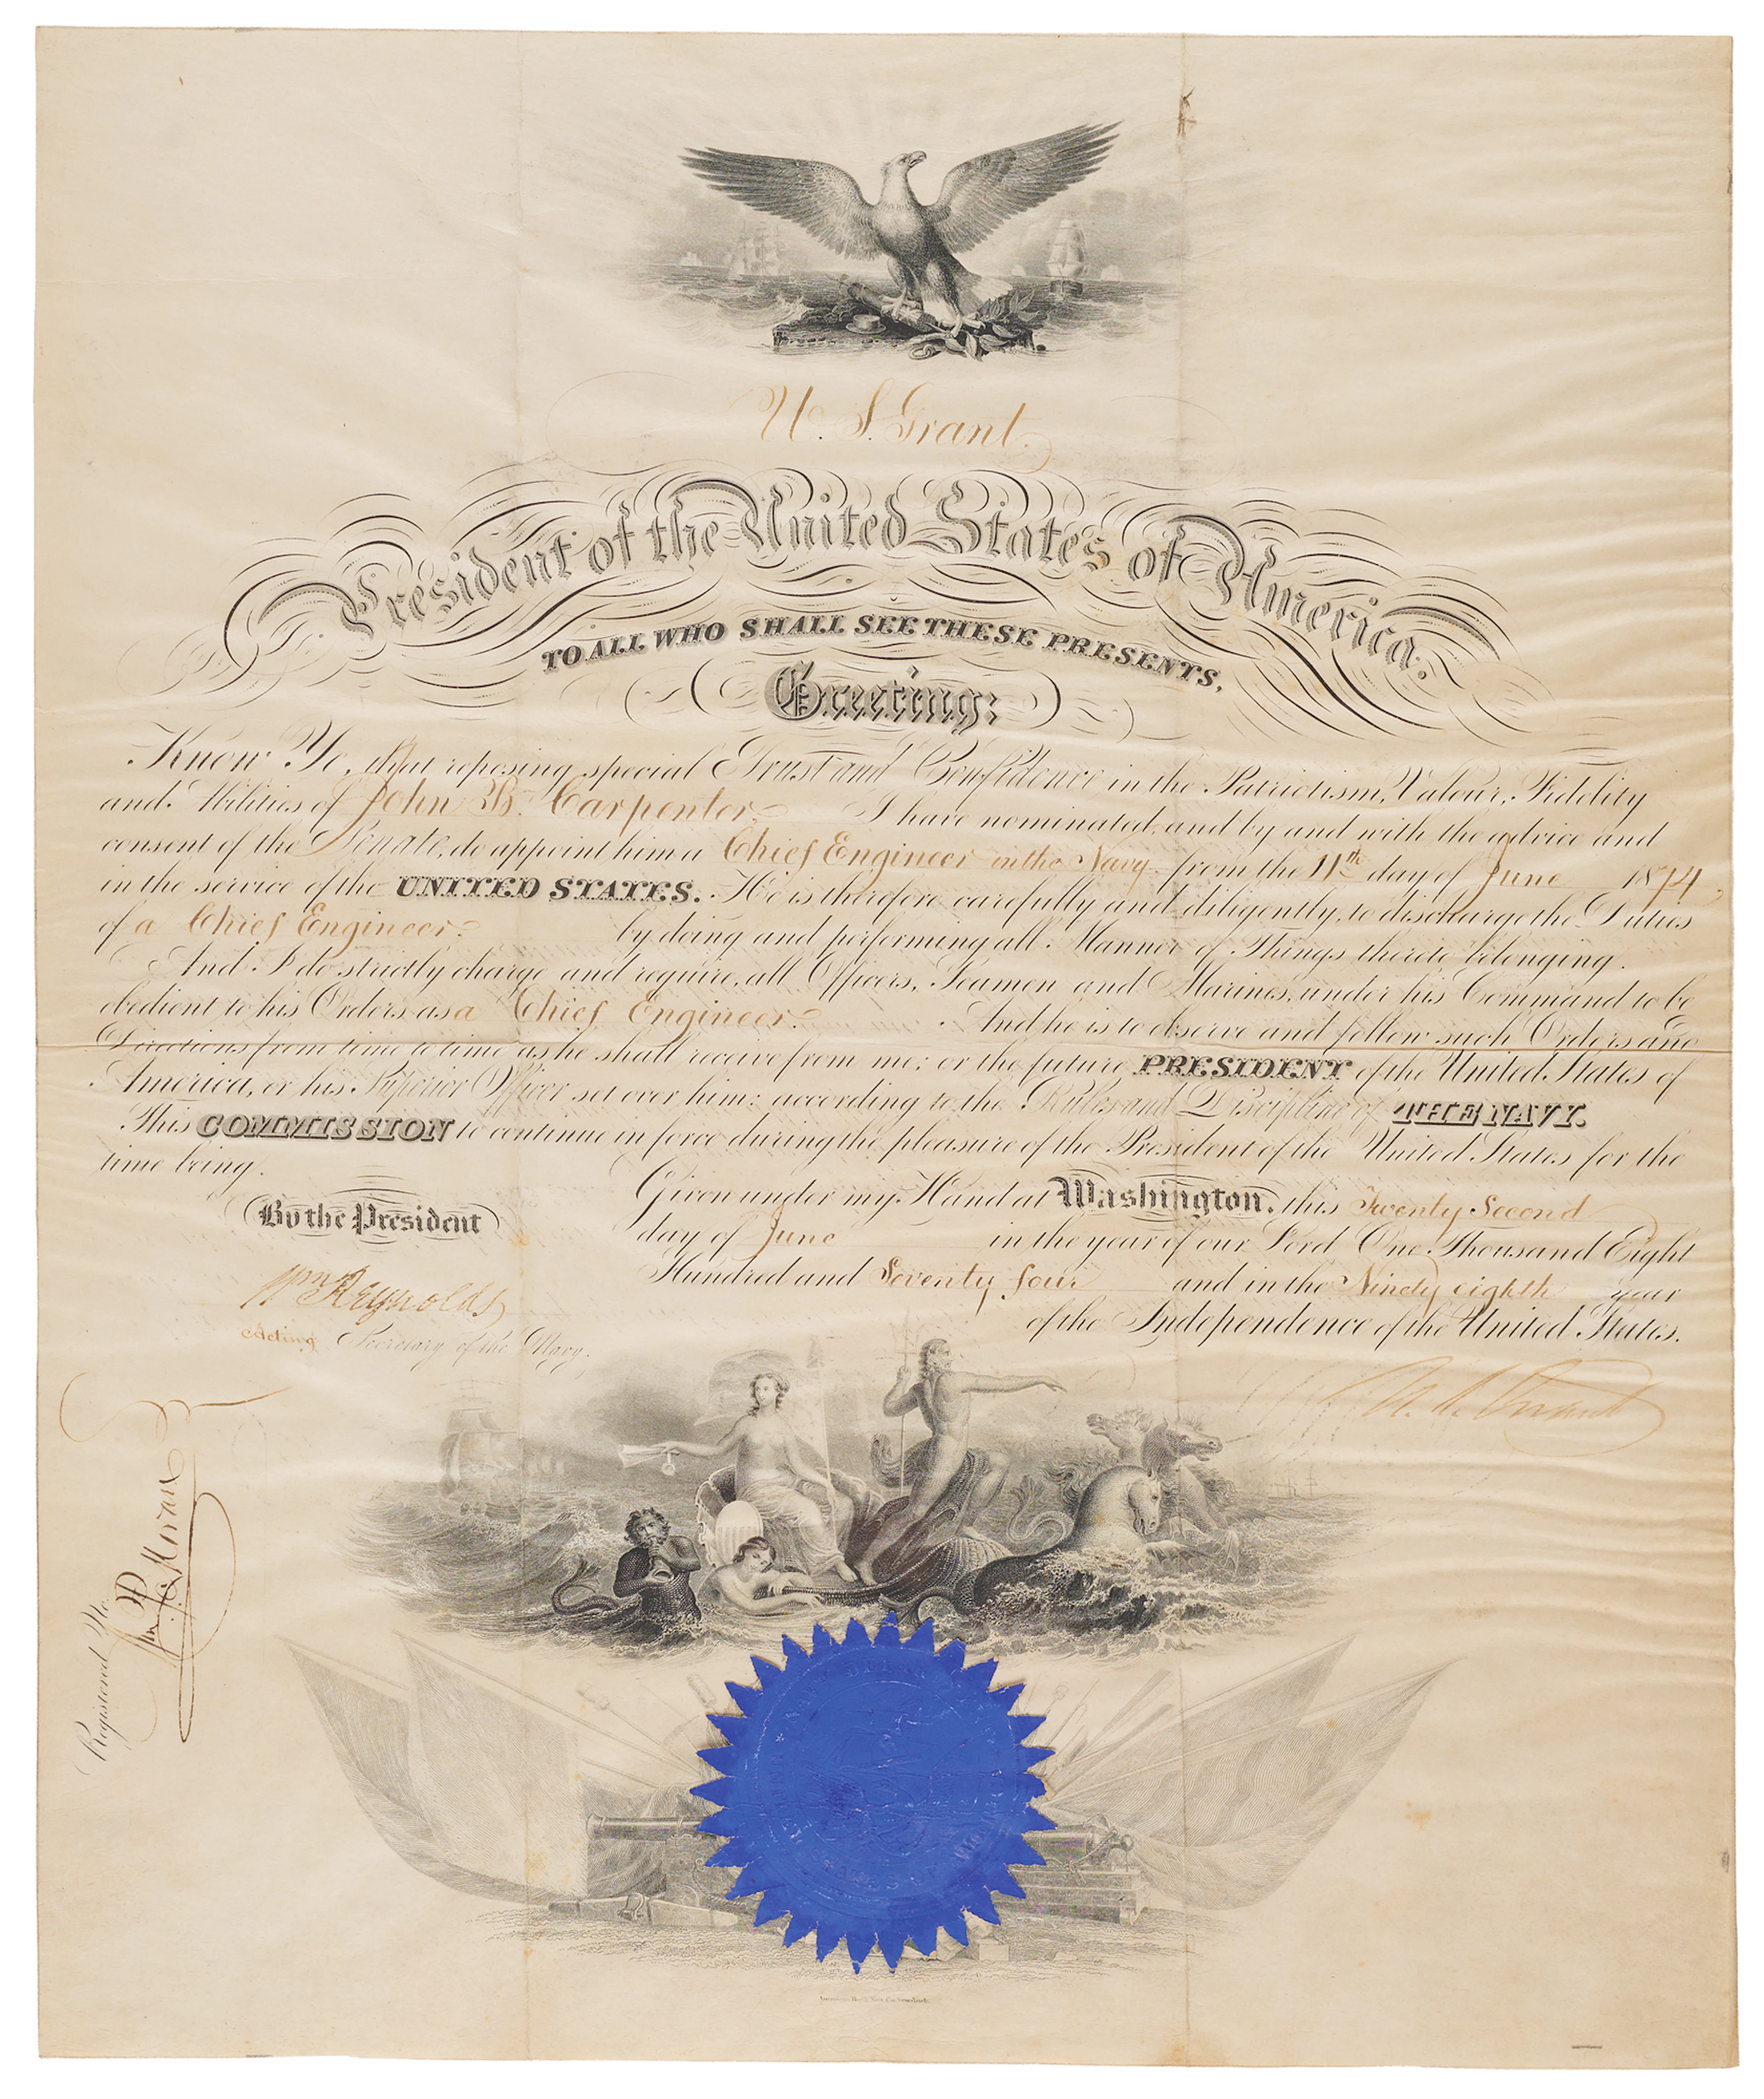 U. S. Grant.
President of the United States of America.
TO ALL WHO SHALL SEE THESE PRESENTS,
Greeting:
Know Ye, that reposing special Trust and Confidence in the Patriotism, Valour, Fidelity
and Abilities of John B. Carpenter I have nominated, and by and with the advice and
consent of the Senate, do appoint him a Chief Engineer in the Navy from the 11th day of June 1874,
in the service of the UNITED STATES. He is therefore carefully and diligently, to discharge the Duties
of a Chief Engineer by doing and performing all Manner of Things thereto belonging.
And I do strictly charge and require, all Officers, Seamen and Marines, under his Command to be
obedient to his Orders as a Chief Engineer. And he is to observe and follow such Orders and
Directions from time to time as he shall receive from me; or the future PRESIDENT of the United States of
America, or his Superior Officer set over him; according to the Rules and Discipline of THE NAVY.
This COMMISSION to continue in force during the pleasure of the President of the United States for the
time being.
Given under my Hand at Washington, this Twenty Second
day of June in the year of our Lord One Thousand Eight
Hundred and Seventy four and in the Ninety eighth year
of the Independence of the United States.
By the President
Wm Reynolds
Acting Secretary of the Navy.
U. S. Grant
Registered No.
Wm P. Moran